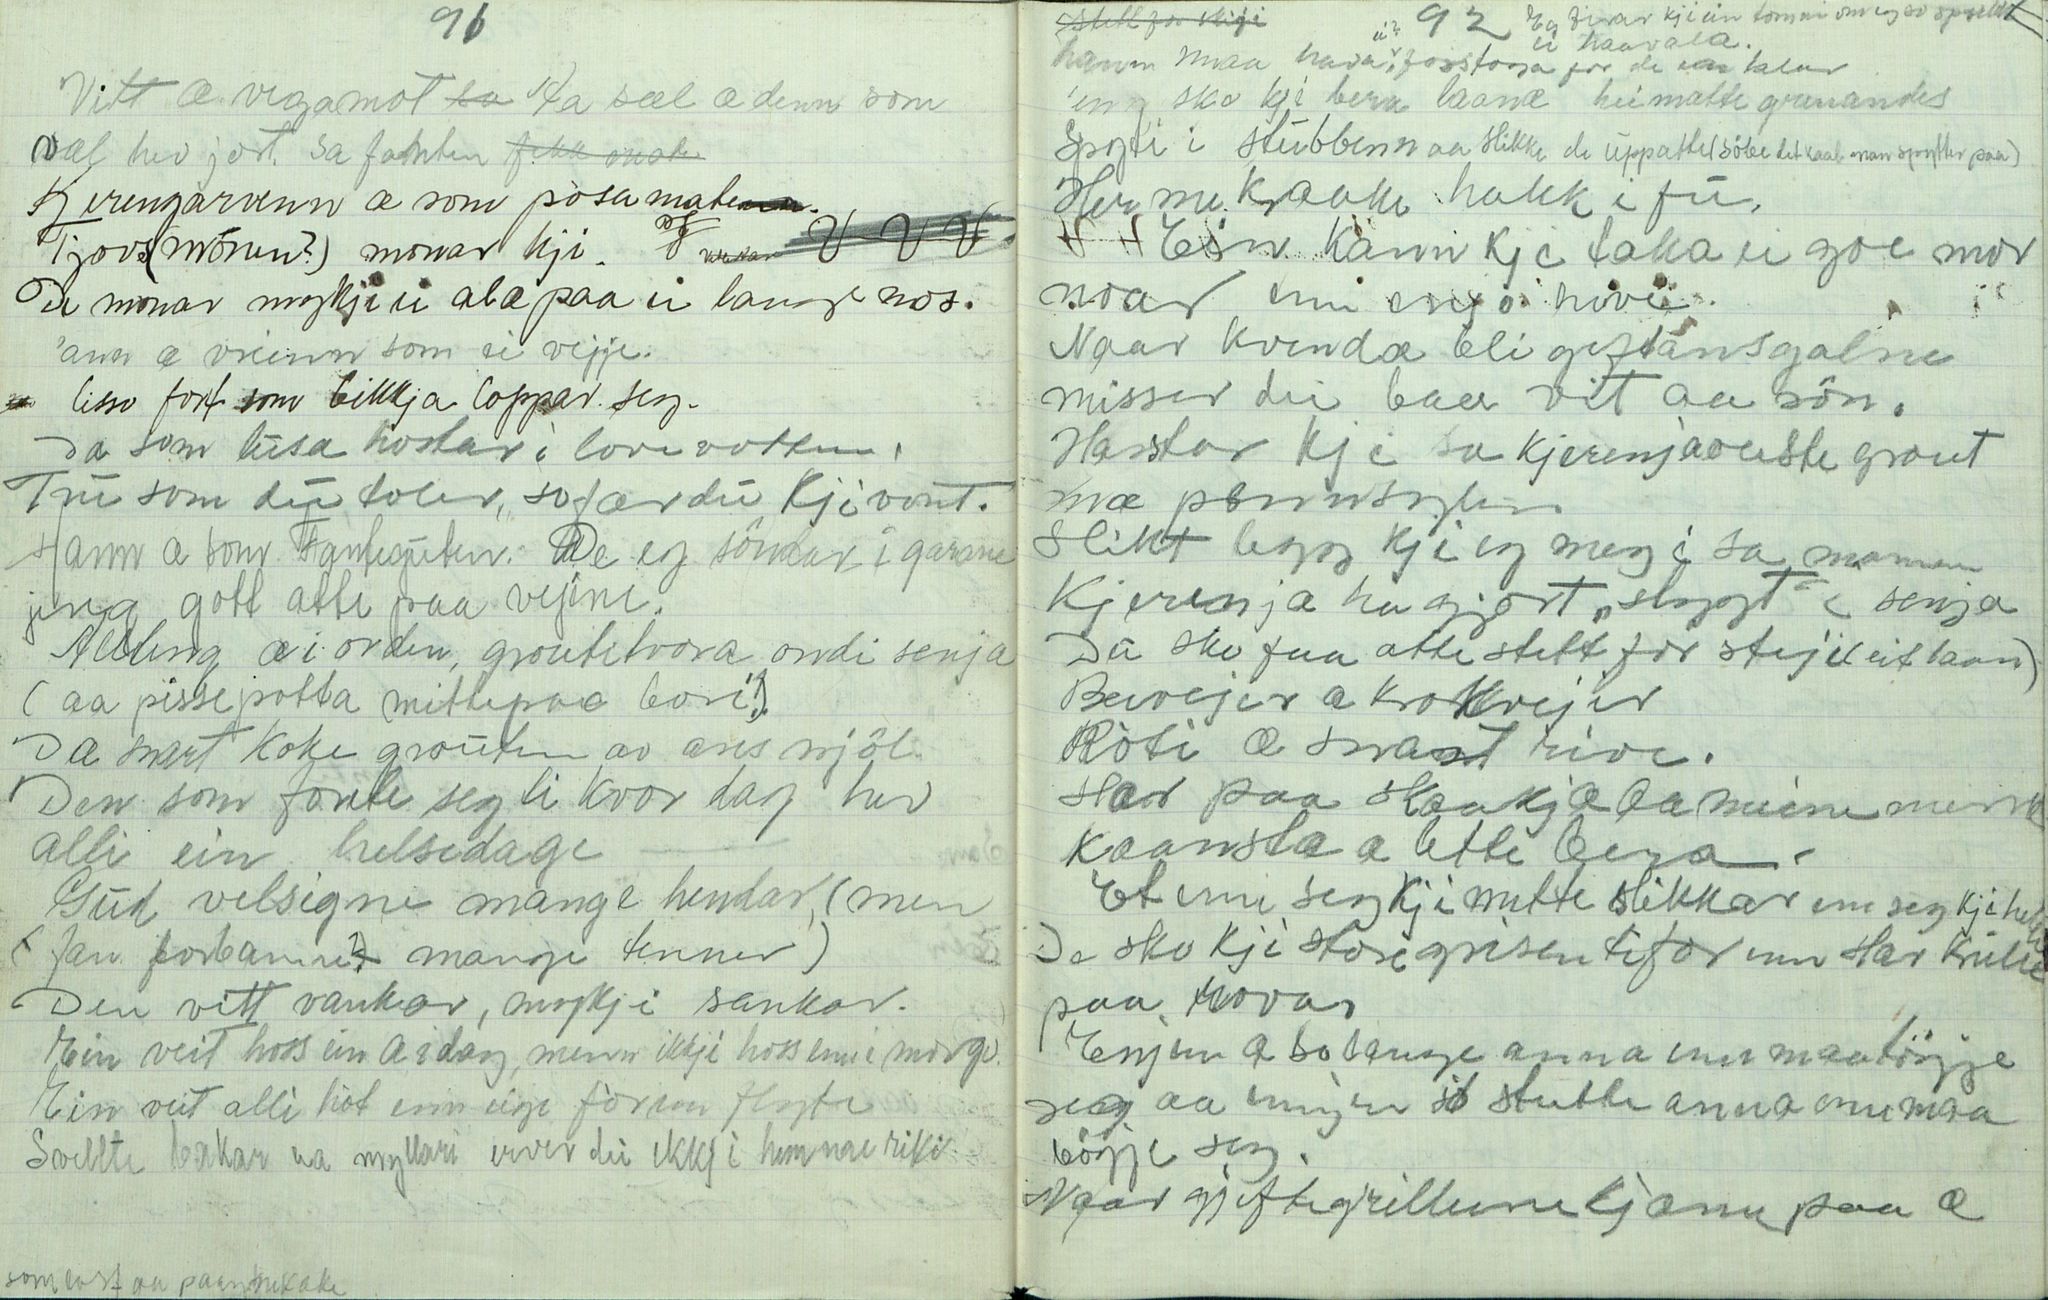 91
Vitt æ vegamot ~~sa~~ Ja sæl æ denn som
væl hev jort. Sa fanten
Kjerengarvenn æ som posa maten.
Tjovs (mönen?) monar kji.
De mönar mykji ei alæ paa ei lang nos.
'ann æ vreienn som ei vijje.
lisso fort som bikkja loppar seg.
Da som lusa hostar i lovevotten.
Trü som dü toler, so fær dü kji vont.
Hann æ som Fantegüten. De eg sömar i garane
jeng gott atte paa vejene.
Allting æ i orden, groutetvora ondi senja
(aa pissepotta mittepaa bori!)
Da snart koke grouten av ares mjöl.
Den som foule seg li kvor dag hev
alli ein helsedage
Gud velsigne mange hendar, (men
(fan forbanne mange tenner)
Den vitt vankar, mykji sankar.
Ein veit hoss ein æ idag, menn ikkji hoss enn i morgo.
Ein veit alli höt enn eige förenn flyte
Svellte bakar aa myllari kjem ikkji i himmerike
som ost aa pannekake
92
~~stell for steje~~
Eg jevar kji ein tomme om eg so spyelle
ei haavala.
hann maa hava forstonga for de enn talar
'eng sko kji bera laane heimatte grenandes
Spyti i stübbenn aa slikke de üppatte (söbe det kaal man spytter paa)
Her me. kraake hakk i fü.
Ein kann kji taka ei goe mor
noar enn enjo hove.
Naar kvendæ bli geftansgalne
misser dei baa vit aa sön.
Hastar kji sa kjerenja ouste grout
mæ pennsylen
Slikt legg kji eg meg i sa mannen
Kjerenja ha gjort „stygt" i senja
Dü sko faa atte stellt for steji (eit laan)
Beinvejer æ krokvejer
Röti æ snart rive.
Har paa staakjæ aa meine merr
kaansla æ lette bera.
Et enn seg kji mette slikkar enn seg kji heller
De sko kji store grisen ti for enn har krülle
paa rova
Enjen æ so lange anna enn maa töyje
seg aa enjen so stutte anna enn maa
böyje seg.
Naar gjiftegrillene kjæm paa æ